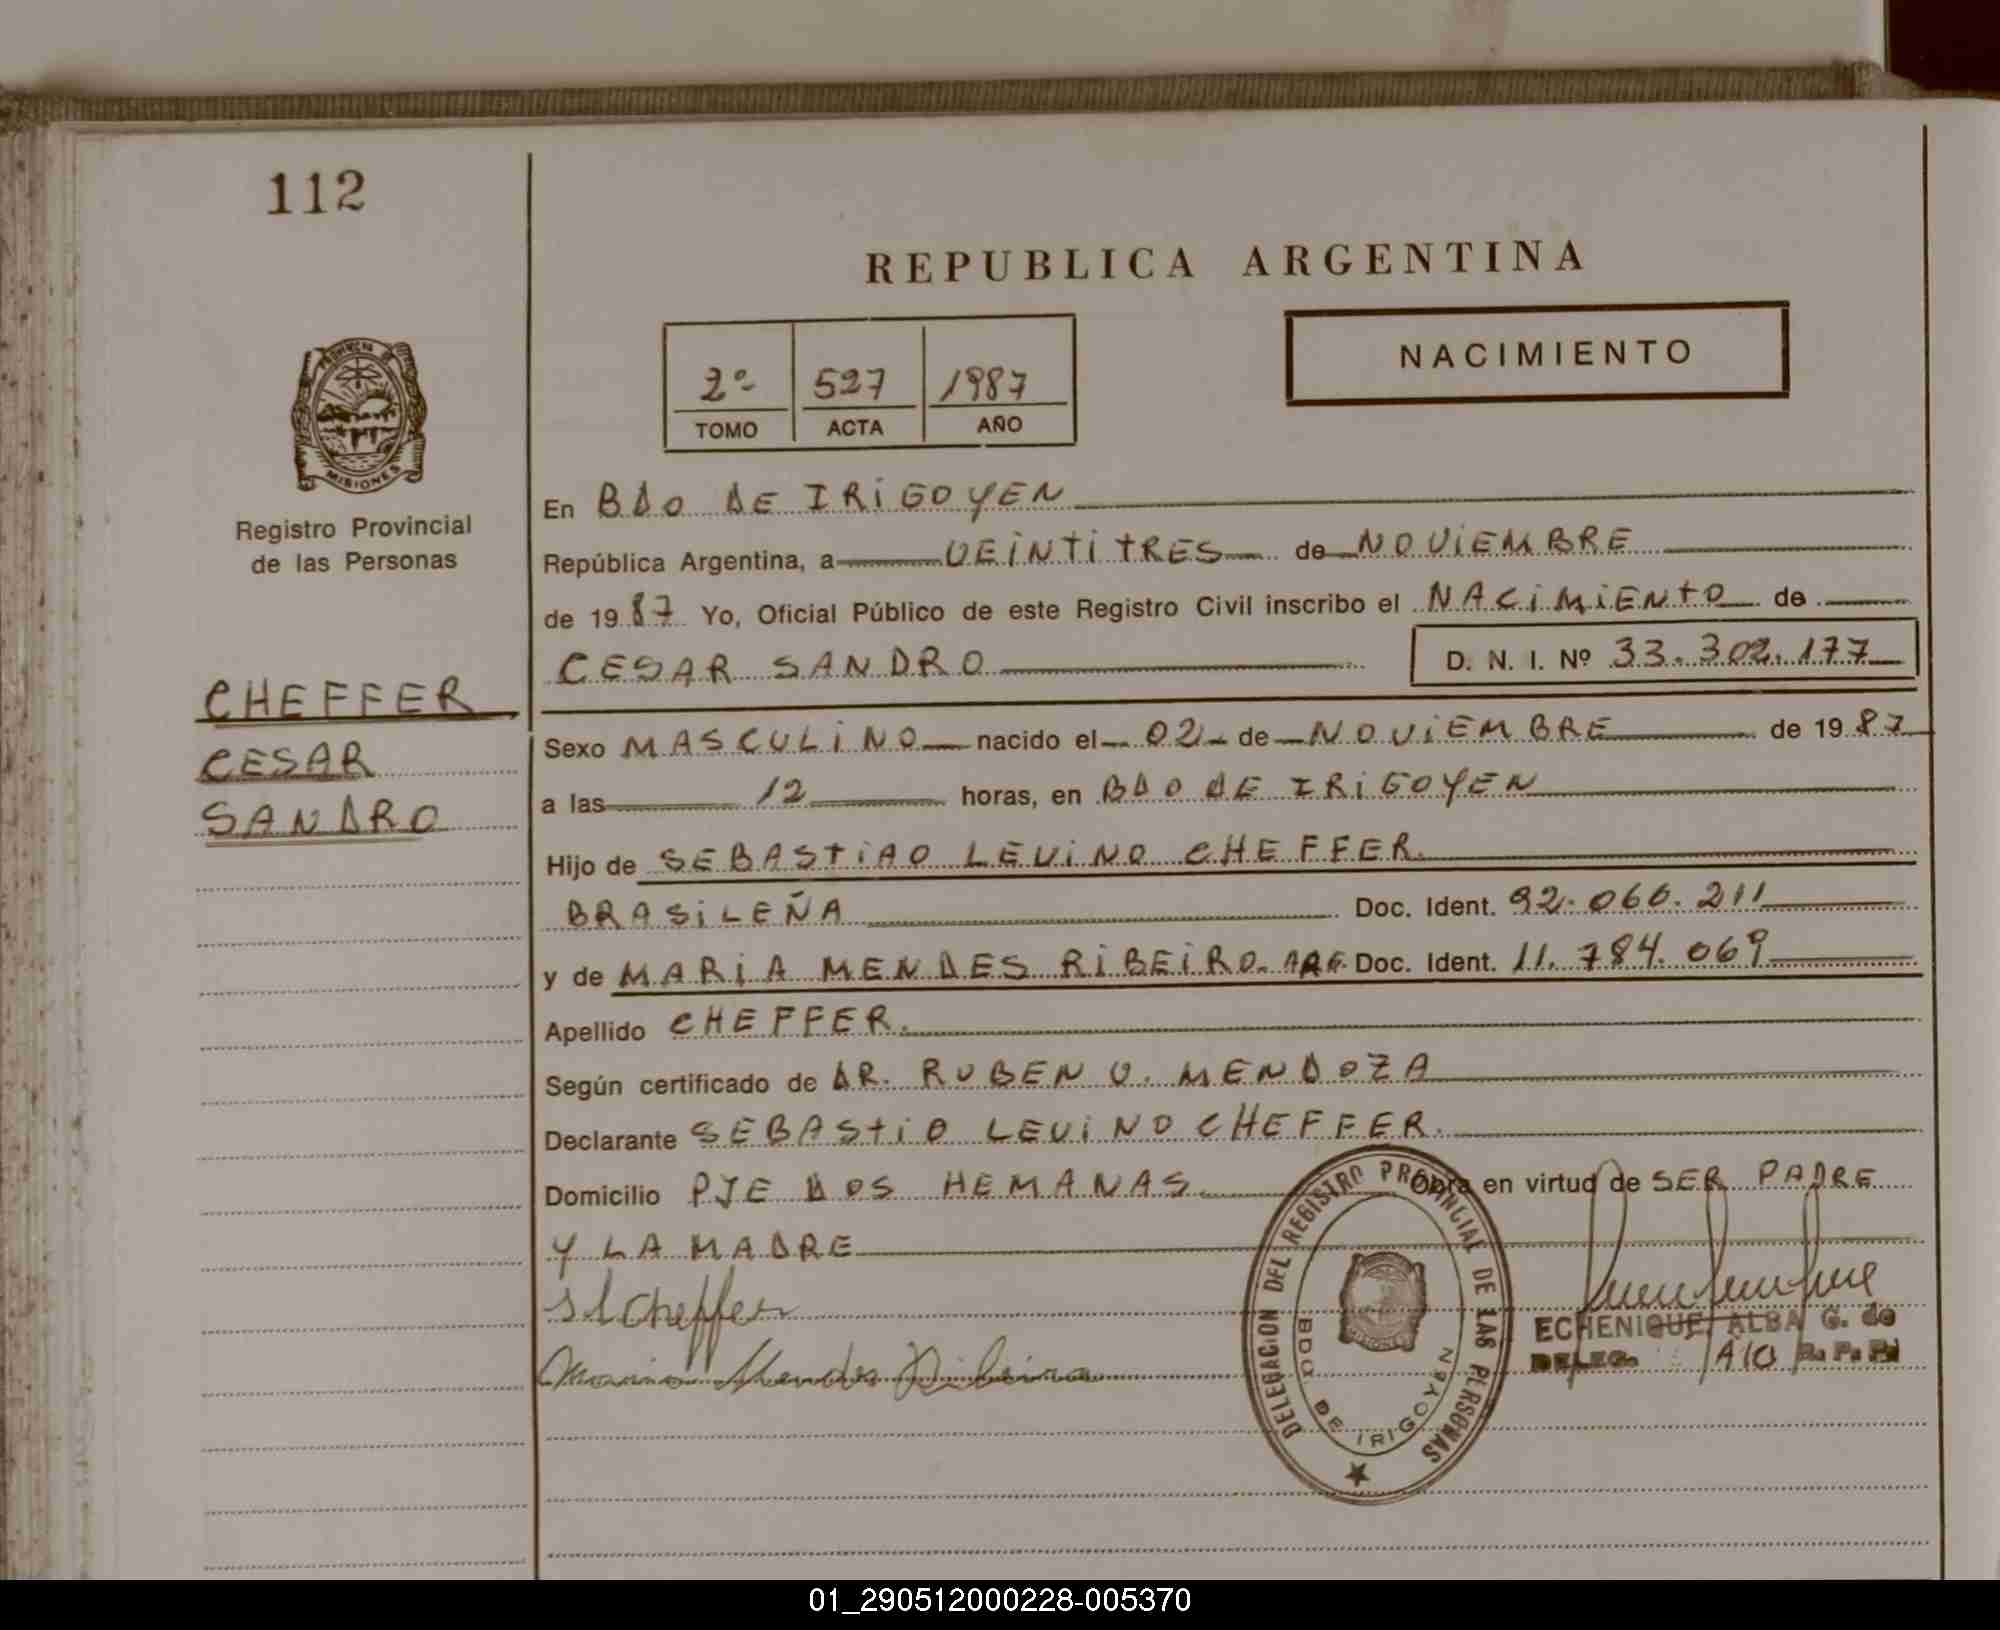 112
REPUBLICA ARGENTINA
NACIMIENTO
2º 527 1987
TOMO ACTA AÑO
PROVINCIA DE MISIONES
Registro Provincial
de las Personas
CHEFFER
CESAR
SANDRO
En BDO DE IRIGOYEN
República Argentina, a VEINTITRES de NOVIEMBRE
de 1987 Yo, Oficial Público de este Registro Civil inscribo el NACIMIENTO de
CESAR SANDRO D. N. I. Nº 33.302.177
Sexo MASCULINO nacido el 02 de NOVIEMBRE de 1987
a las 12 horas, en BDO DE IRIGOYEN
Hijo de SEBASTIAO LEVINO CHEFFER.
BRASILEÑA Doc. Ident. 92.066.211
y de MARIA MENDES RIBEIRO. ARG. Doc. Ident. 11.784.069
Apellido CHEFFER.
Según certificado de DR. RUBEN V. MENDOZA
Declarante SEBASTIO LEVINO CHEFFER.
Domicilio PJE DOS HEMANAS Obra en virtud de SER PADRE
Y LA MADRE
S L Cheffer
Maria Mendes Ribeiro
DELEGACION DEL REGISTRO PROVINCIAL DE LAS PERSONAS
BDO. DE IRIGOYEN
ECHENIQUE, ALBA G. de
DELEG. R. P. P.
01_290512000228-005370